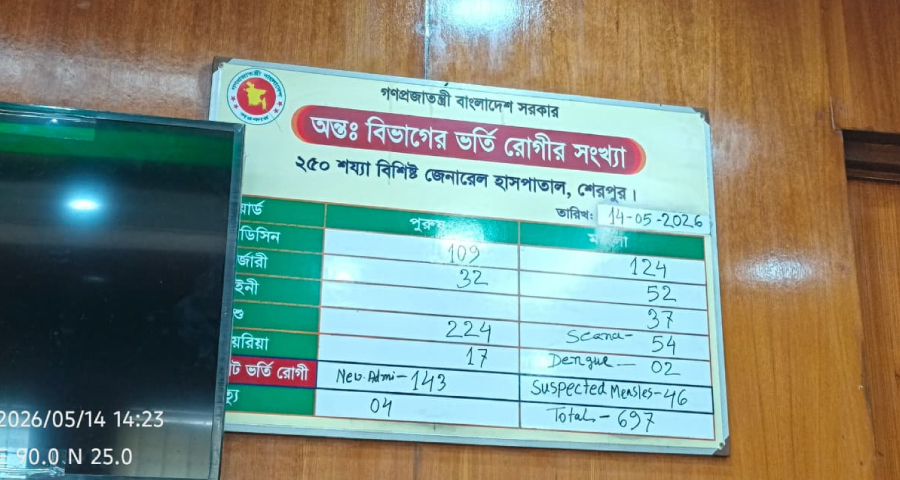 গণপ্রজাতন্ত্রী বাংলাদেশ সরকার
অন্তঃ বিভাগের ভর্তি রোগীর সংখ্যা
২৫০ শয্যা বিশিষ্ট জেনারেল হাসপাতাল, শেরপুর।
তারিখঃ 14-05-2026
য়ার্ড পুরুষ মহিলা
ডিসিন 109 124
র্জারী 32 52
ইনী 37
শু 224 Scanu- 54
য়রিয়া 17 Dengue- 02
ট ভর্তি রোগী New Admi-143 Suspected Measles-46
ত্যু 04 Total-697
2026/05/14 14:23
90.0 N 25.0